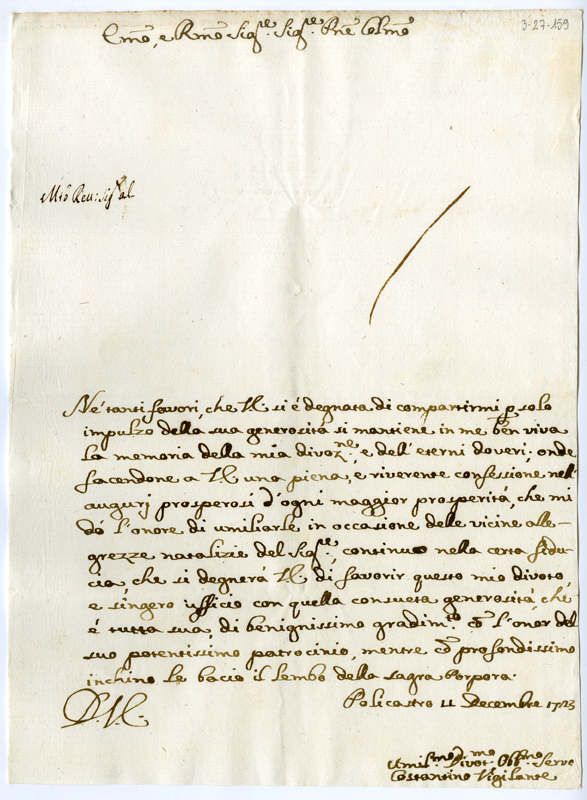 3-27-159
Emō, e Rmō Sig.re Sig.re Pne Colmō
Ne' tanti favori, che V.E. si è degnata di compartirmi p solo
impulzo della sua generosità si mantiene in me ben viva
la memoria della mia divoz.ne, e dell'eterni doveri; onde
facendone a V.E. una piena, e riverente confessione nell'
augurj prosperosi d'ogni maggior prosperità, che mi
dò l'onore di umiliarle in occasione delle vicine alle-
grezze natalizie del Sig.re, continuo nella certa fidu-
cia, che si degnerà V.E. di favorir questo mio divoto,
e singero ufficio con quella consueta generosità, che
è tutta sua, di benignissimo gradim.to, e l'onor del
suo potentissimo patrocinio, mentre cō profondissimo
inchino le bacio il lembo della sagra Porpora.
Policastro 11 Decembre 1723
D.V.E.
Umil.mo Divot.mo Obb.mo Servo
Costantino Vigilante